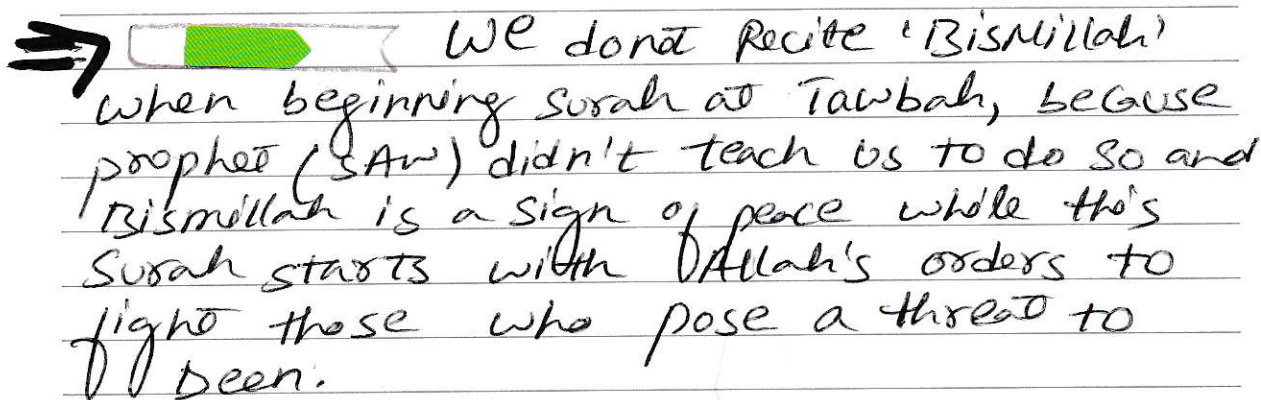 We donot Recite 'Bismillah'
when beginning surah at Tawbah, because
prophet (SAW) didn't teach us to do so and
Bismillah is a sign of peace while this
Surah starts with Allah's orders to
fight those who pose a threat to
Deen.